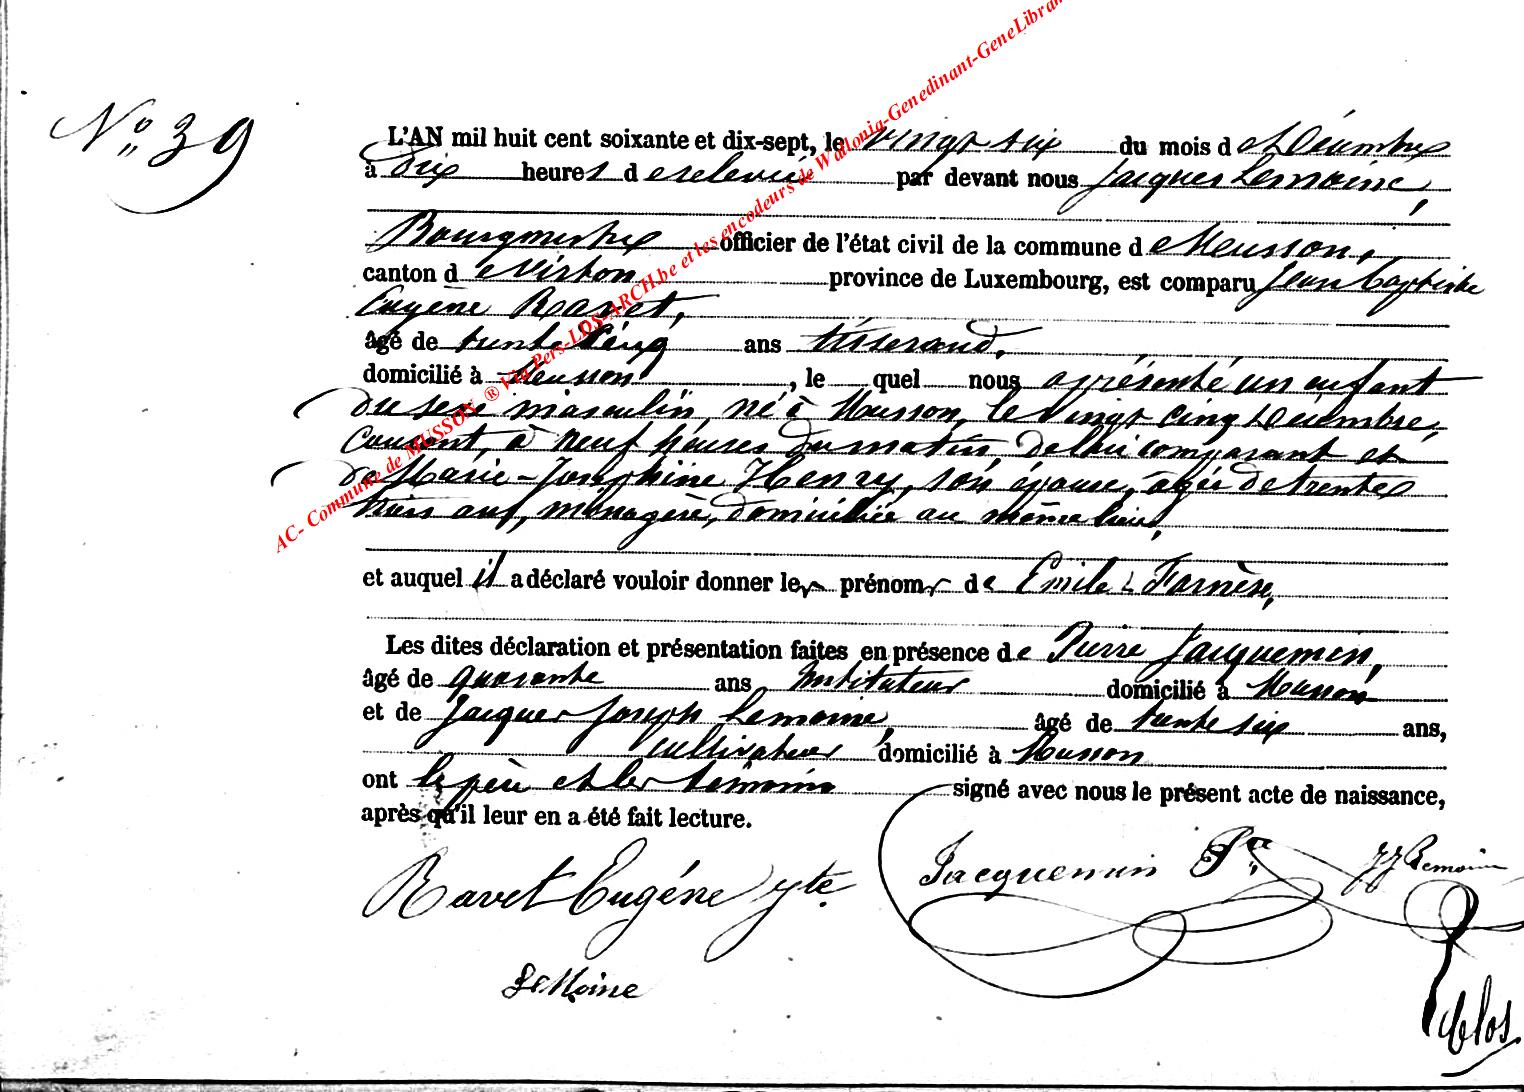 N° 39
L'AN mil huit cent soixante et dix-sept, le vingt six du mois de Décembre
à dix heures de relevée par devant nous Jacques Lemoine,
Bourgmestre officier de l'état civil de la commune de Musson,
canton de Virton province de Luxembourg, est comparu Jean Baptiste
Eugène Ravet,
âgé de trente cinq ans tisserand,
domicilié à Musson, le quel nous a présenté un enfant
du sexe masculin, né à Musson, le vingt cinq Décembre,
courant, à neuf heures du matin, de lui comparant et
de Marie-Joséphine Henry, son épouse, agée de trente
trois ans, ménagère, domiciliée au même lieu,
et auquel il a déclaré vouloir donner les prénoms de Emile
Les dites déclaration et présentation faites en présence de Pierre Jacquemin,
âgé de quarante ans Instituteur domicilié à Musson
et de Jacques Joseph Lemoine, âgé de trente six ans,
cultivateur domicilié à Musson
ont le père et les témoins signé avec nous le présent acte de naissance,
après qu'il leur en a été fait lecture.
Ravet Eugène Jacquemin JJ Lemoine
LeMoine
Clos
AC- Commune de MUSSON ® Via Pers-LDS-ARCH.be et les encodeurs de Wallonia-Genedinant-GeneLibra